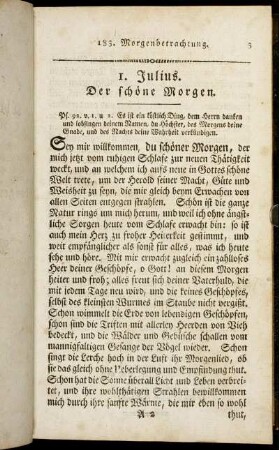 183. Morgenbetrachtung. 3
1. Julius.
Der schöne Morgen.
Ps. 92. v. 1. u. 2. Es ist ein köstlich Ding, dem Herrn danken
und lobsingen deinem Namen, du Höchster, des Morgens deine
Gnade, und des Nachts deine Wahrheit verkündigen.
Sey mir willkommen, du schöner Morgen, der
mich jetzt vom ruhigen Schlafe zur neuen Thätigkeit
weckt, und an welchem ich aufs neue in Gottes schöne
Welt trete, um der Herold seiner Macht, Güte und
Weisheit zu seyn, die mir gleich beym Erwachen von
allen Seiten entgegen strahlen. Schön ist die ganze
Natur rings um mich herum, und weil ich ohne ängst-
liche Sorgen heute vom Schlafe erwacht bin: so ist
auch mein Herz zu froher Heiterkeit gestimmt, und
weit empfänglicher als sonst für alles, was ich heute
sehe und höre. Mit mir erwacht zugleich ein zahlloses
Heer deiner Geschöpfe, o Gott! an diesem Morgen
heiter und froh; alles freut sich deiner Vaterhuld, die
mit jedem Tage neu wird, und die keines Geschöpfes,
selbst des kleinsten Wurmes im Staube nicht vergißt.
Schon wimmelt die Erde von lebendigen Geschöpfen,
schon sind die Triften mit allerley Heerden von Vieh
bedeckt, und die Wälder und Gebüsche schallen vom
mannigfaltigen Gesange der Vögel wieder. Schon
singt die Lerche hoch in der Luft ihr Morgenlied, ob
sie das gleich ohne Ueberlegung und Empfindung thut.
Schon hat die Sonne überall Licht und Leben verbrei-
tet, und ihre wohlthätigen Strahlen bewillkommen
mich durch ihre sanfte Wärme, die mir eben so wohl
A 2 thut,